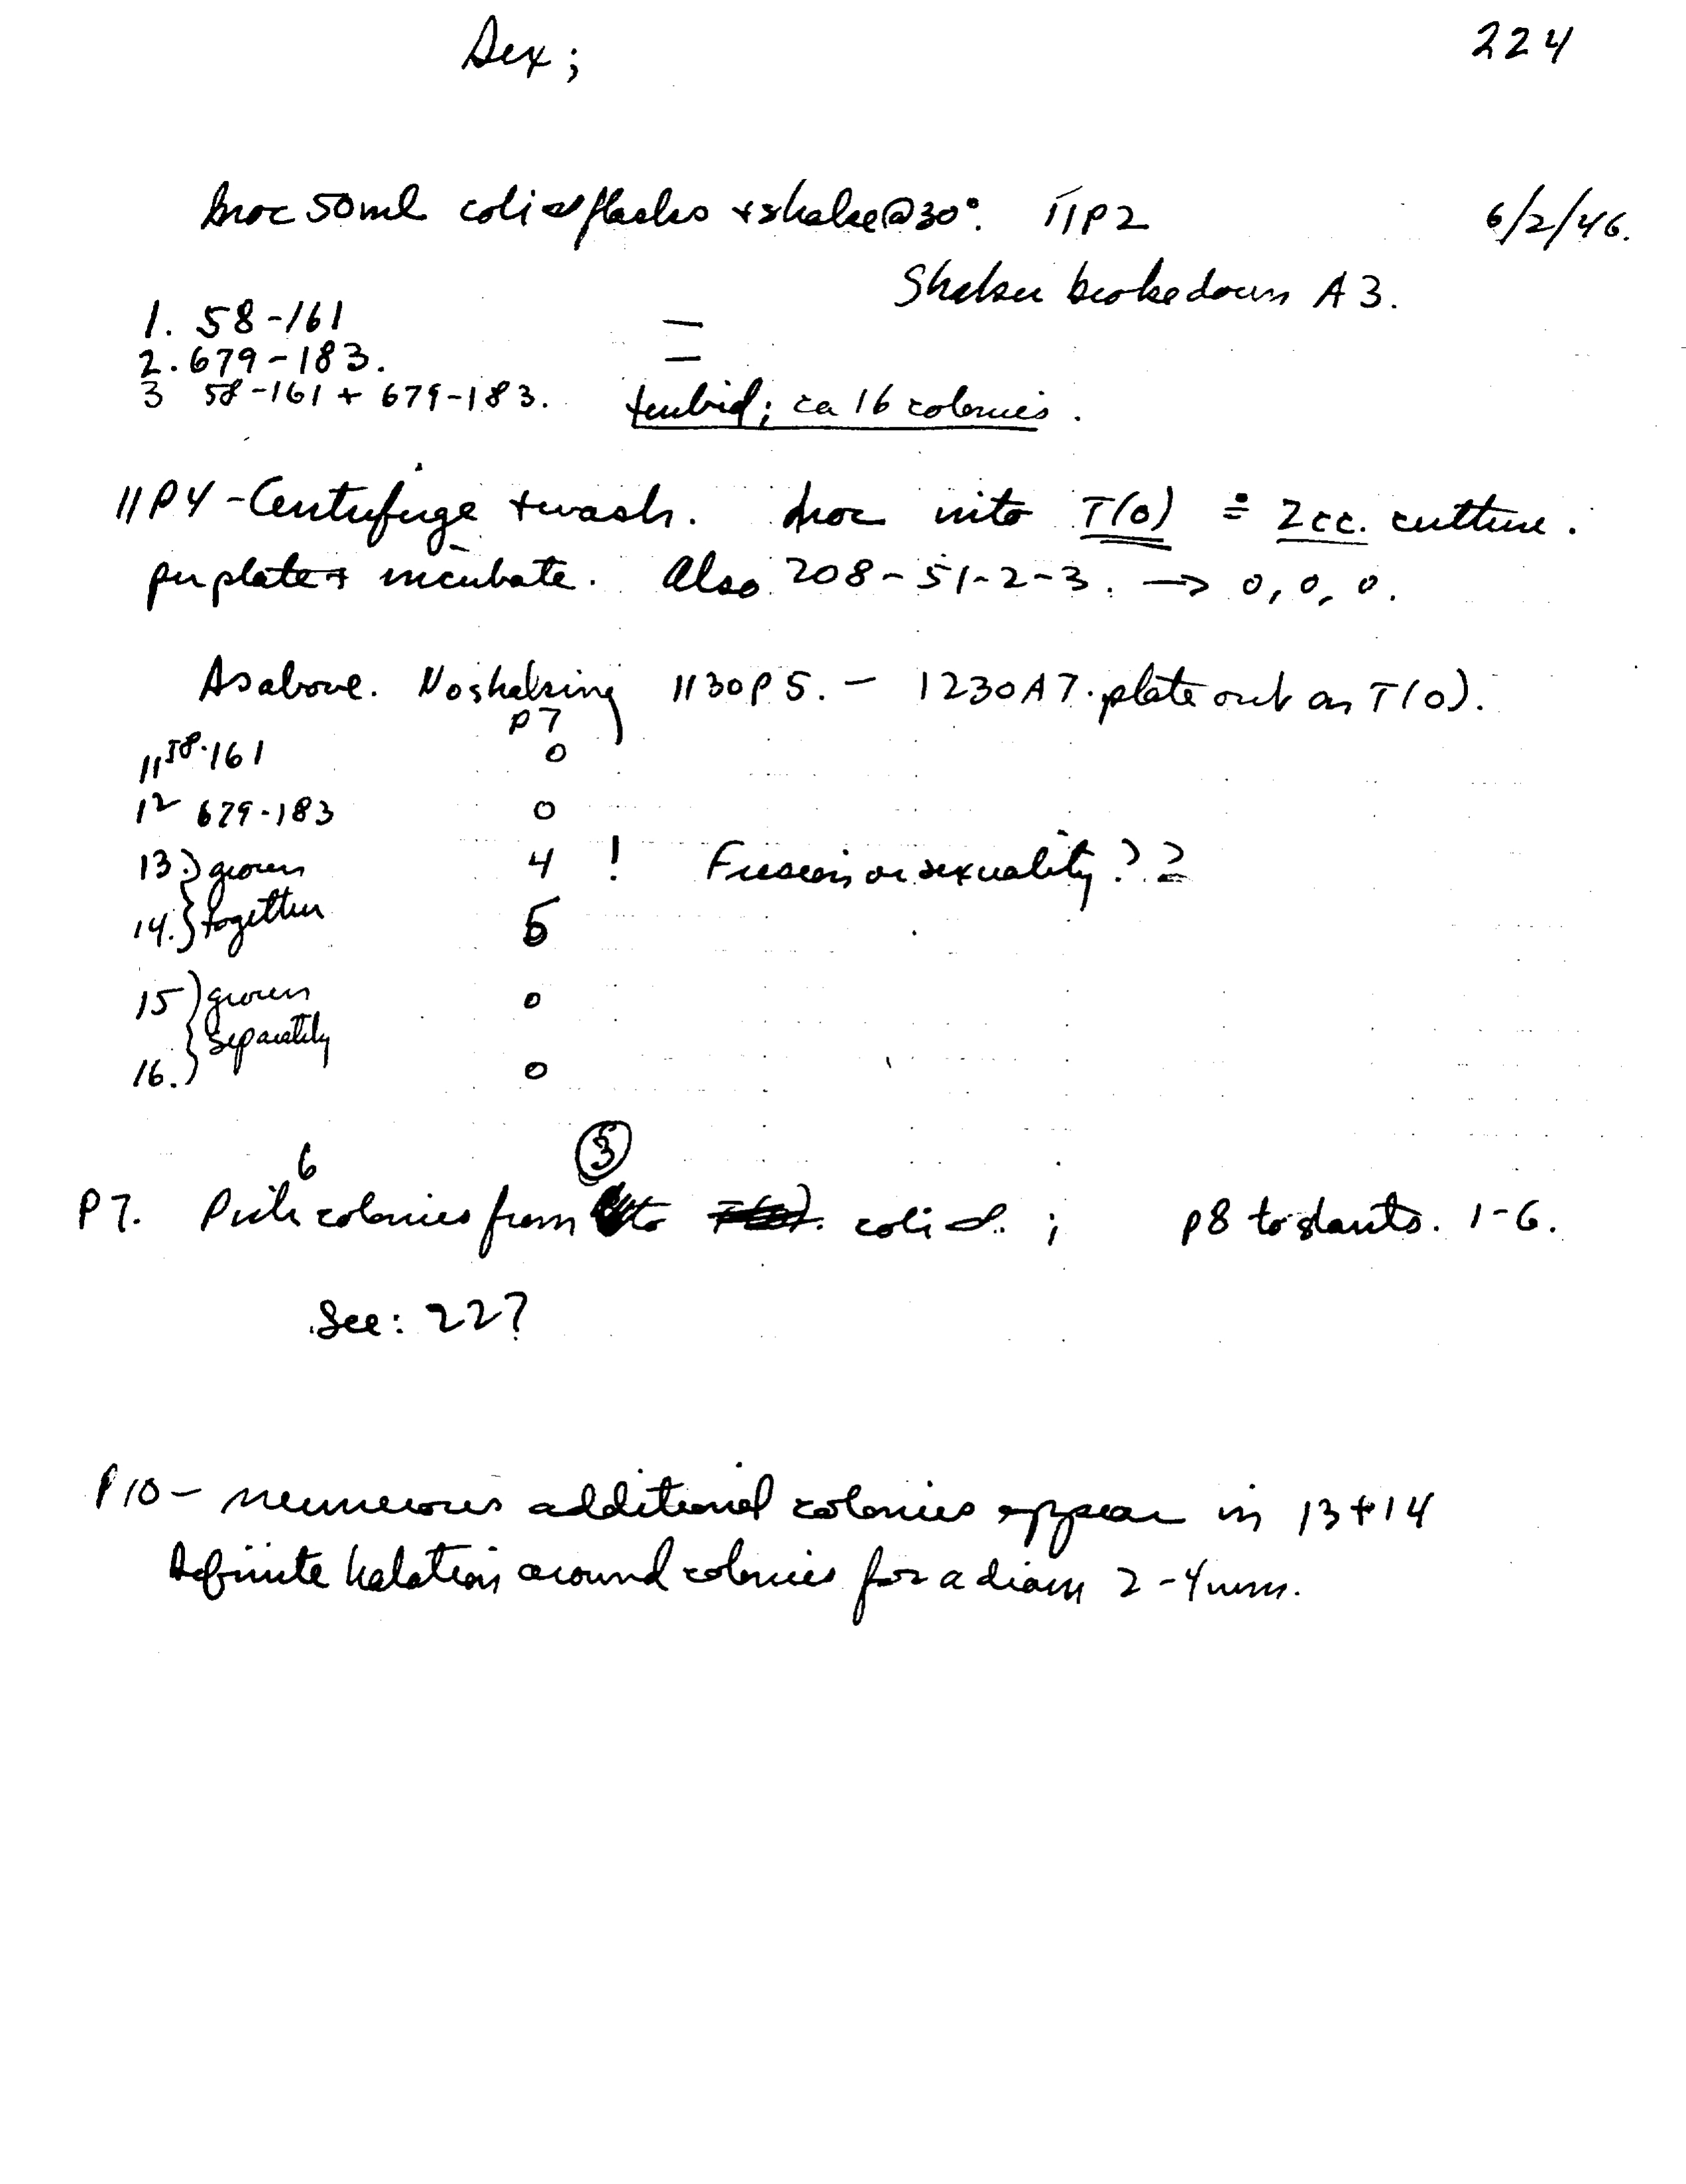 Sex; 224
Inoc 50ml coli d flasks + shake @ 30°. 11P2 6/2/46.
Shaker broke down A3.
1. 58-161 —
2. 679-183. —
3 58-161 + 679-183. turbid; ca 16 colonies.
11P4 - Centrifuge + wash. Inoc into T(0) ≑ 2cc. culture.
per plate + incubate. Also 208-51-2-3. → 0, 0, 0.
As above. No shaking 1130P5. - 1230A7. plate out on T(0).
P7
11 58-161 0
12 679-183 0
13.) grown 4 ! Fusion or sexuality??
14.} together 5
15) grown 0
separately
16.) 0
P7. Pick 6 colonies from ③ to coli d. ; p8 to slants. 1-6.
See: 227
P10 - numerous additional colonies appear in 13+14
Definite halation around colonies for a diam 2-4mm.